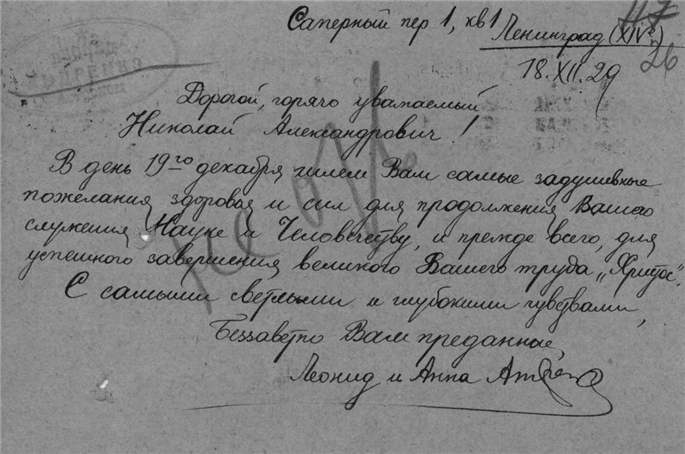 Саперный пер 1, кв 1
Ленинград (XIV)
26
18.XII.29
Дорогой, горячо уважаемый
Николай Александрович!
В день 19го декабря шлем Вам самые задушевные
пожелания здоровья и сил для продолжения Вашего
служения Науке и Человечеству, и прежде всего, для
успешного завершения великого Вашего труда „Христос".
С самыми светлыми и глубокими чувствами,
Беззаветно Вам преданные,
Леонид и Анна